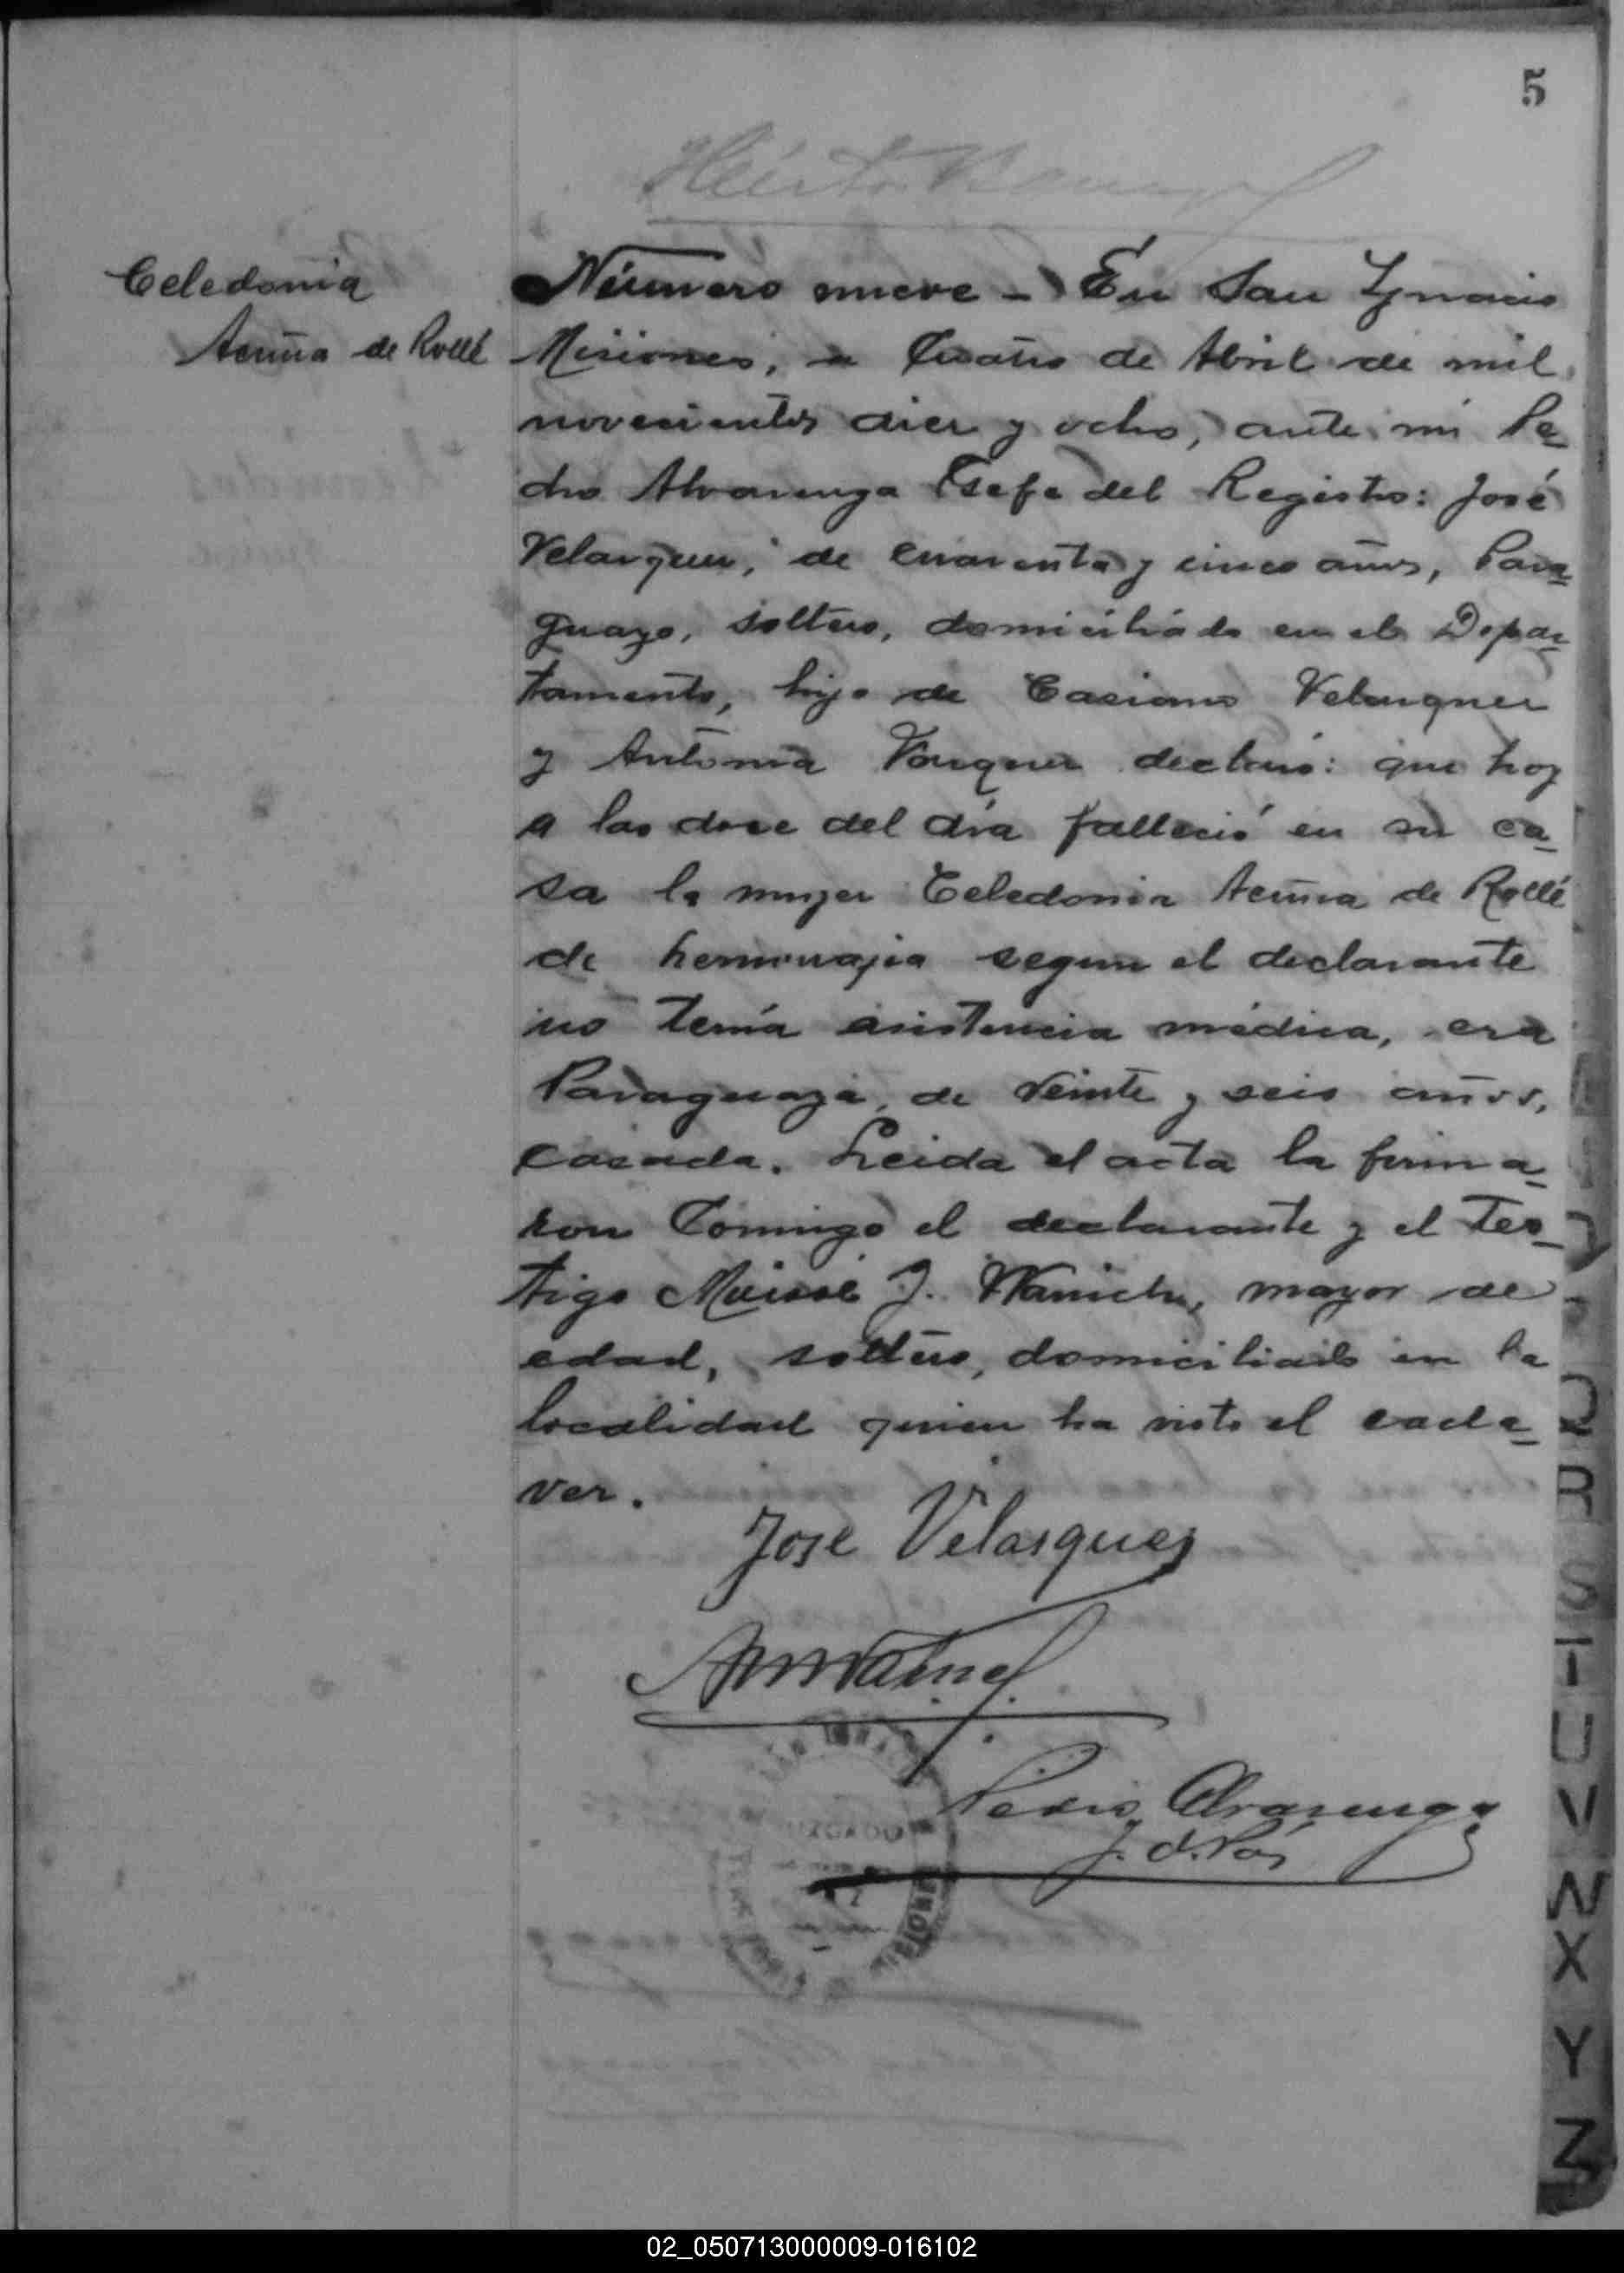 5
Celedonia
Acuña de Rollé
Número nueve - En San Ygnacio
Misiones, a Cuatro de Abril de mil
novecientos diez y ocho, ante mi Pe-
dro Alvarenga Gefe del Registro: José
Velazquez, de cuarenta y cinco años, Para-
guayo, soltero, domiciliado en el Depar-
tamento, hijo de Casiano Velazquez
y Antonia Vazquez declaró: que hoy
a las doce del día falleció en su ca-
sa la mujer Celedonia Acuña de Rollé
de hemorragia segun el declarante
no tenía asistencia médica, era
Paraguaya, de veinte y seis años,
casada. Leida el acta la firma-
ron Comingo el declarante y el tes-
tigo J. mayor de
edad, soltero, domiciliado en la
localidad quien ha visto el cada-
ver.
Jose Velasquez
Pedro Alvarenga
J. d. Paz
JUZGADO
MISIONES
P
Q
R
S
T
U
V
W
X
Y
Z
02_050713000009-016102